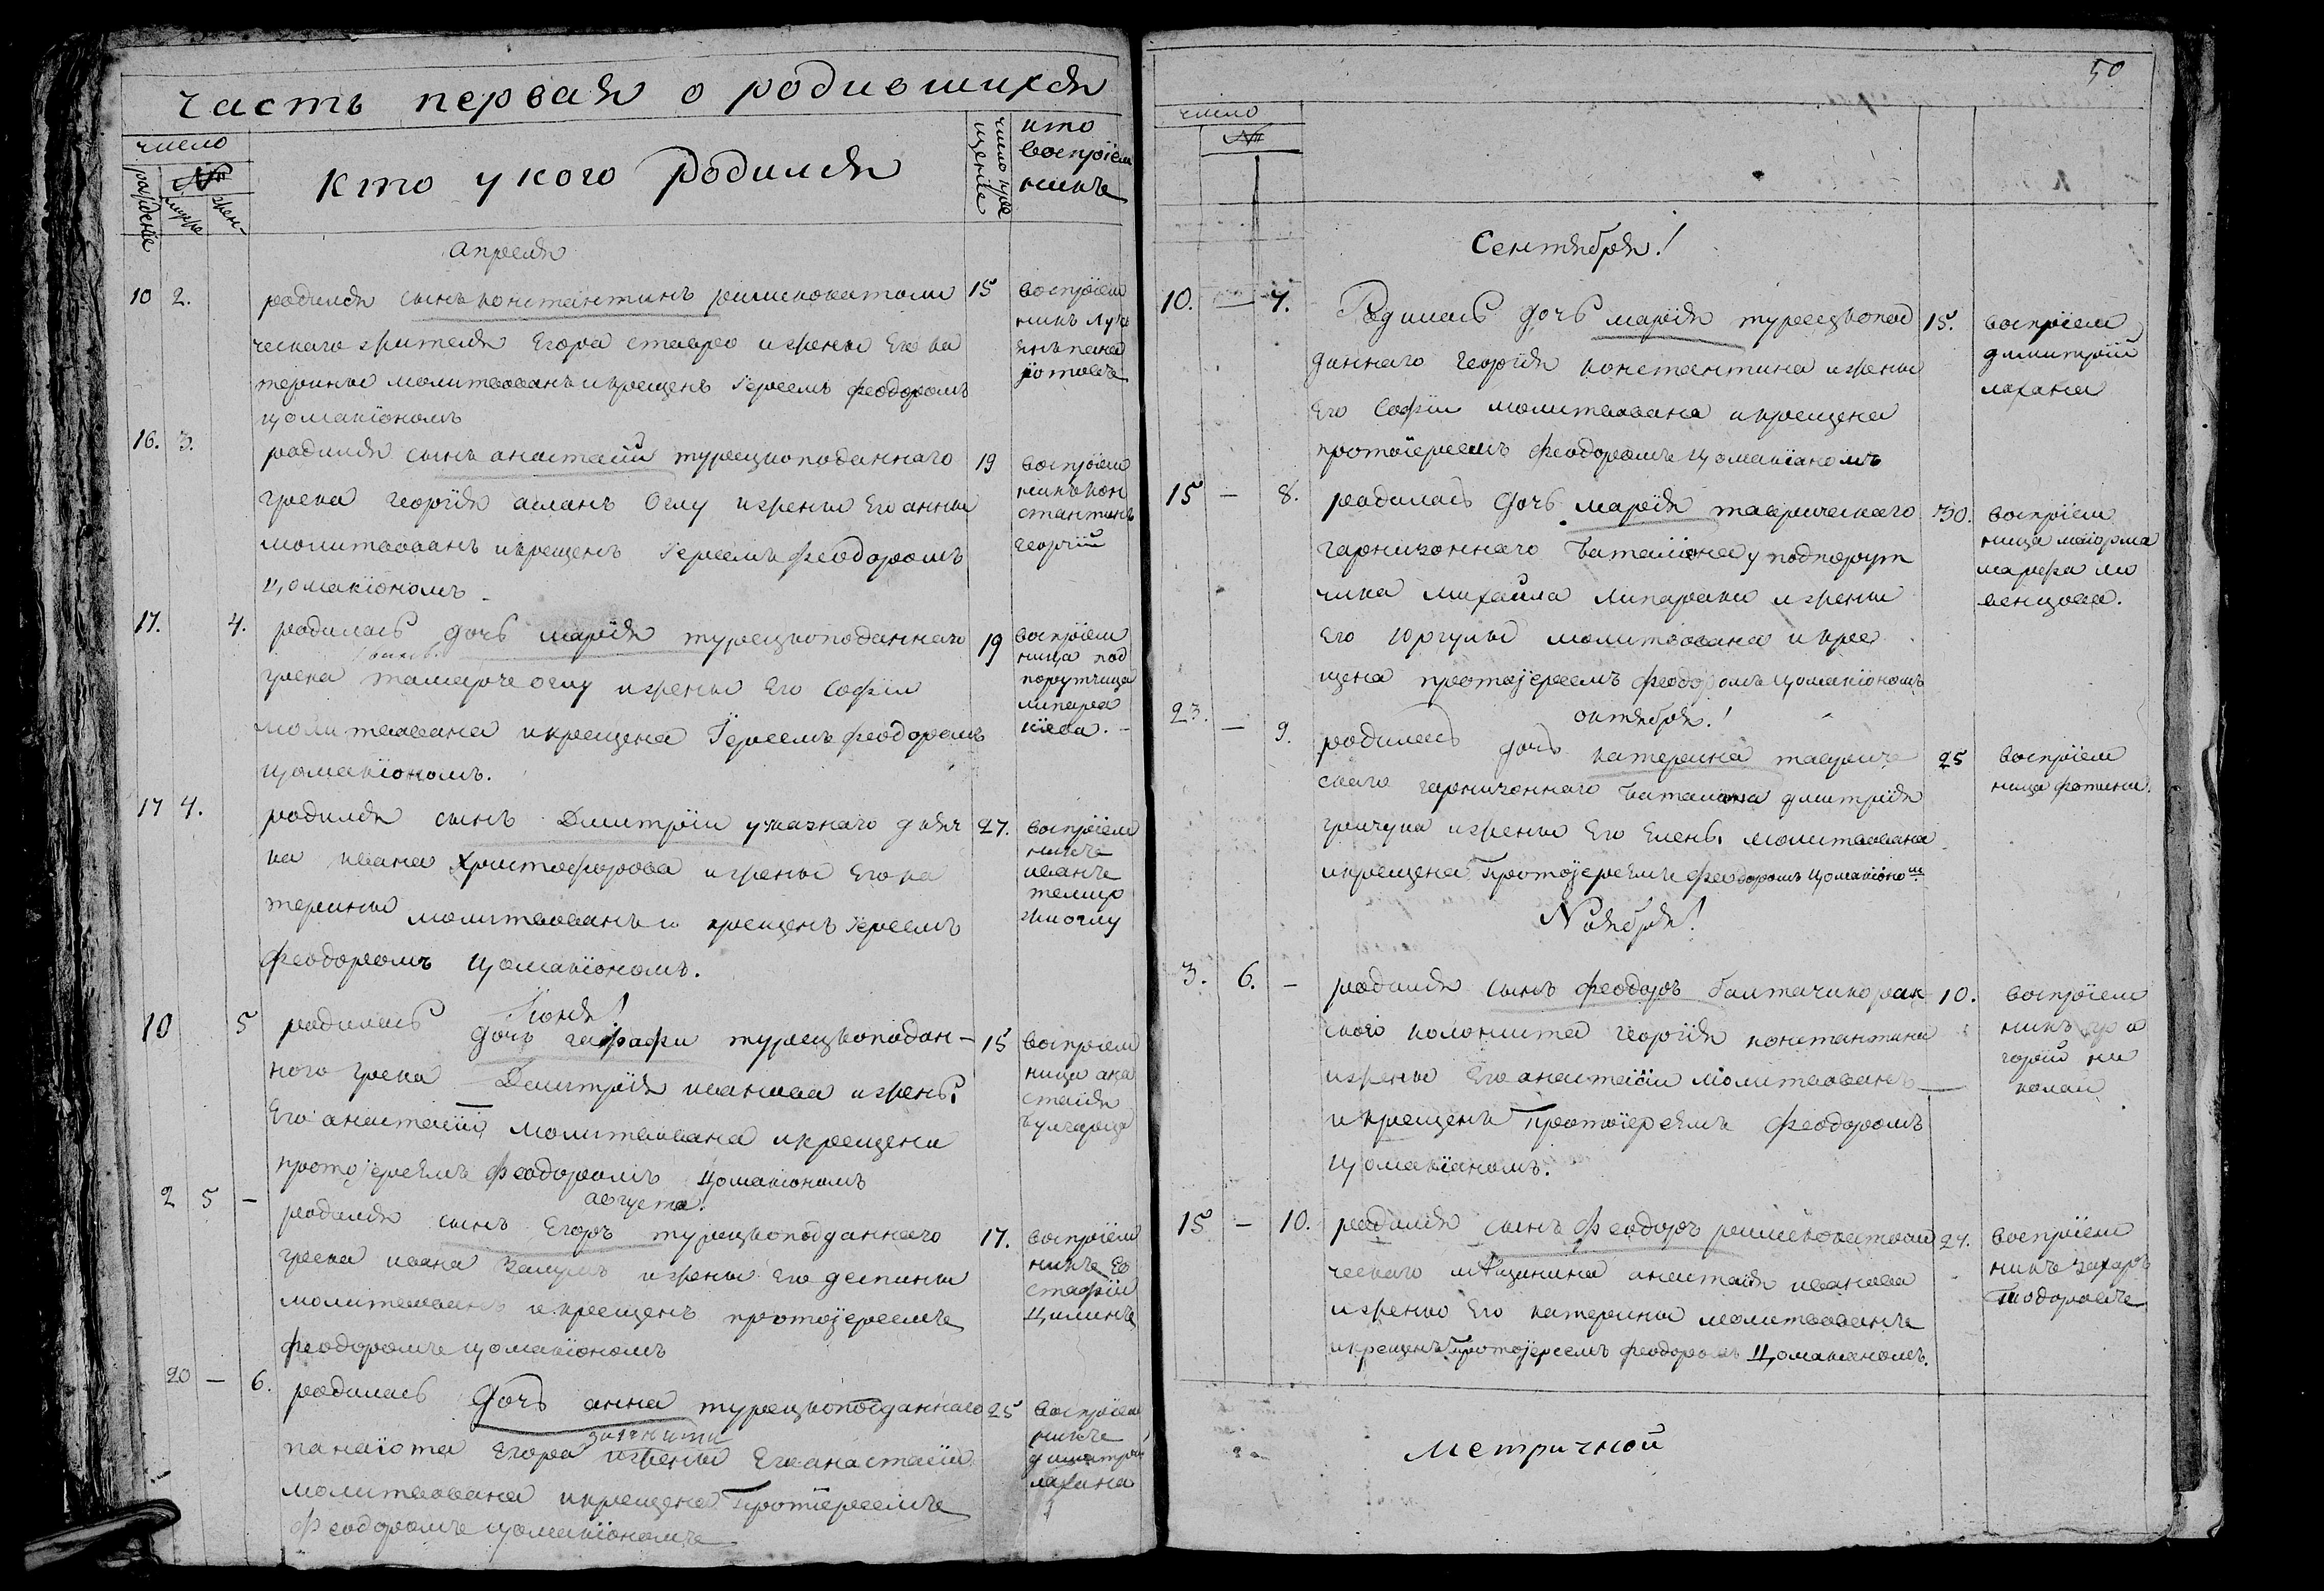 часть первая о родившихся
число
№
рождение
муже
жен-
кто у кого родился
число кре
щение
кто
воспрїем
никъ
апреля
10 2.
родился сынъ константинъ римскокатоли
ческаго жителя Егора ставро и жены Его ка
терины молитвованъ и крещенъ Їереемъ феодоромъ
цомакїономъ
15
воспрїем
никъ
16. 3.
родился сынъ анастасїй турецкоподаннаго
грека георгїя асланъ Оглу и жены Его анны
молитвованъ и крещенъ Їереемъ феодоромъ
цомакїономъ
19
воспрїем
никъ кон
стантинъ
георгїй
17. 4.
родилась дочь марїя турецкоподаннаго
грека оглу и жены Его Софїи
молитвована и крещена Їереемъ феодоромъ
цомакїономъ.
19
воспрїем
ница под
порутчица
липара
кїева.
17 4.
родился сынъ Димитрїи указнаго дьяч
ка ивана Христофорова и жены Его ка
терины молитвованъ и крещенъ їереемъ
феодоромъ цомакїономъ.
27.
воспрїем
никъ
иванъ
темир
жиоглу
Їюня!
10 5
родилась дочь турецкоподан-
ного грека Димитрїя иванова и жены
Его анастасїи молитвована и крещена
протоїереямъ феодоромъ цомакїономъ
15
воспрїем
ница ана
стасїя
булгарїя
августа!
2 5 -
родился сынъ Егоръ турецкоподданнаго
грека ивана и жены Его деспины
молитвованъ и крещенъ протоїереемъ
феодоромъ цомакїономъ
17.
воспрїем
никъ Ев
стафїй
20 - 6.
родилась дочь анна турецкоподданнаго
панаїота Егора и жены Его анастасїи
молитвована и крещена Протоїереемъ
феодоромъ цомакїономъ
25
воспрїем
никъ
димитрїй
лахана
50
число
№
Сентября!
10. — 7.
Родилась дочь марїя турецкопод
даннаго георгїя константина и жены
Его Софїи молитвована и крещена
протоїереемъ феодоромъ цомакїаномъ
15.
воспрїем
димитрїй
лахана
15 - 8.
родилась дочь марїя таврическаго
гарнизоннаго баталїона у подпорут
чика михаила липараки и жены
Его юргулы молитвована и кре
щена протоїереемъ феодоромъ цомакїономъ
30.
воспрїем
ница маїорша
марфа ло
венцова.
октября!
23. — 9.
родилась дочь катерина тавриче
скаго гарнизоннаго баталїона димитрїя
гричука и жены Его Елены молитвована
и крещена Протоїереямъ феодоромъ цомакїоном
25
воспрїем
ница фотини.
Ноября!
3. 6. -
родился сынъ феодоръ балтачикорак
ского колониста георгїя константина
и жены Его анастасїи молитвованъ
и крещенъ Протоїереямъ феодоромъ
цомакїаномъ.
10.
воспрїем
никъ гри
горїй ни
колаи
15 - 10.
родился сынъ феодоръ римскокатоли
ческаго мѣщанина анастасїя иванова
и жены Его катерины молитвованъ
и крещенъ Протоїереемъ феодоромъ Цомакїономъ.
24.
воспрїем
никъ захаръ
тодоровъ
метричной